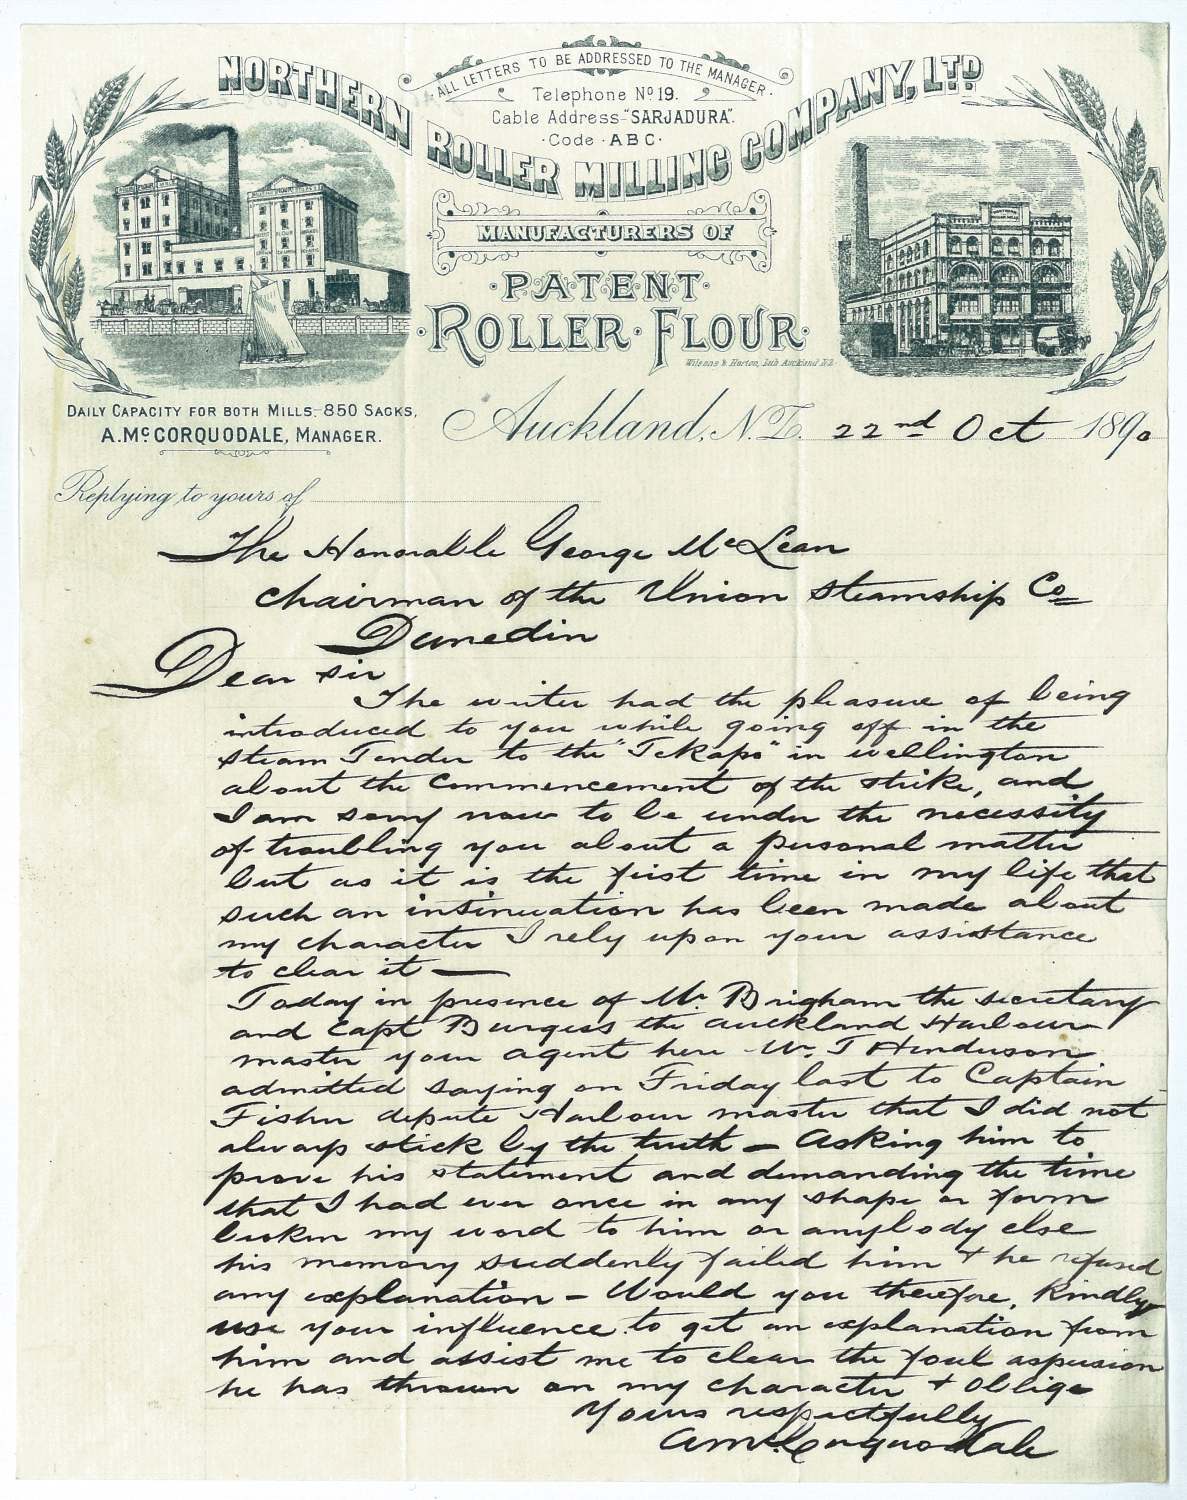 ALL LETTERS TO BE ADDRESSED TO THE MANAGER.
Telephone No 19.
Cable Address-"SARJADURA".
Code · ABC·
NORTHERN ROLLER MILLING COMPANY, LTD
MANUFACTURERS OF
·PATENT·
·ROLLER·FLOUR·
Wilsons & Horton, Lith Auckland N.Z.
DAILY CAPACITY FOR BOTH MILLS,-850 SACKS,
A. McCORQUODALE, MANAGER.
Auckland, N.Z. 22nd Oct 1890
Replying to yours of
The Honorable George McLean
Chairman of the Union Steamship Co
Dunedin
Dear Sir
The writer had the pleasure of being
introduced to you while going off in the
steam Tender to the "Tekapo" in wellington
about the commencement of the strike, and
I am sorry now to be under the necessity
of troubling you about a personal matter
but as it is the first time in my life that
such an insinuation has been made about
my character I rely upon your assistance
to clear it —
Today in presence of Mr. Brigham the secretary
and Capt Burgess the Auckland Harbour
master your agent here Mr. T Henderson
admitted saying on Friday last to Captain
Fisher depute Harbour master that I did not
always stick by the truth — Asking him to
prove his statement and demanding the time
that I had ever once in any shape or form
broken my word to him or anybody else
his memory suddenly failed him + he refused
any explanation — Would you therefore, kindly
use your influence to get an explanation from
him and assist me to clear the foul aspersion
he has thrown on my character + oblige
Yours respectfully
A McCorquodale